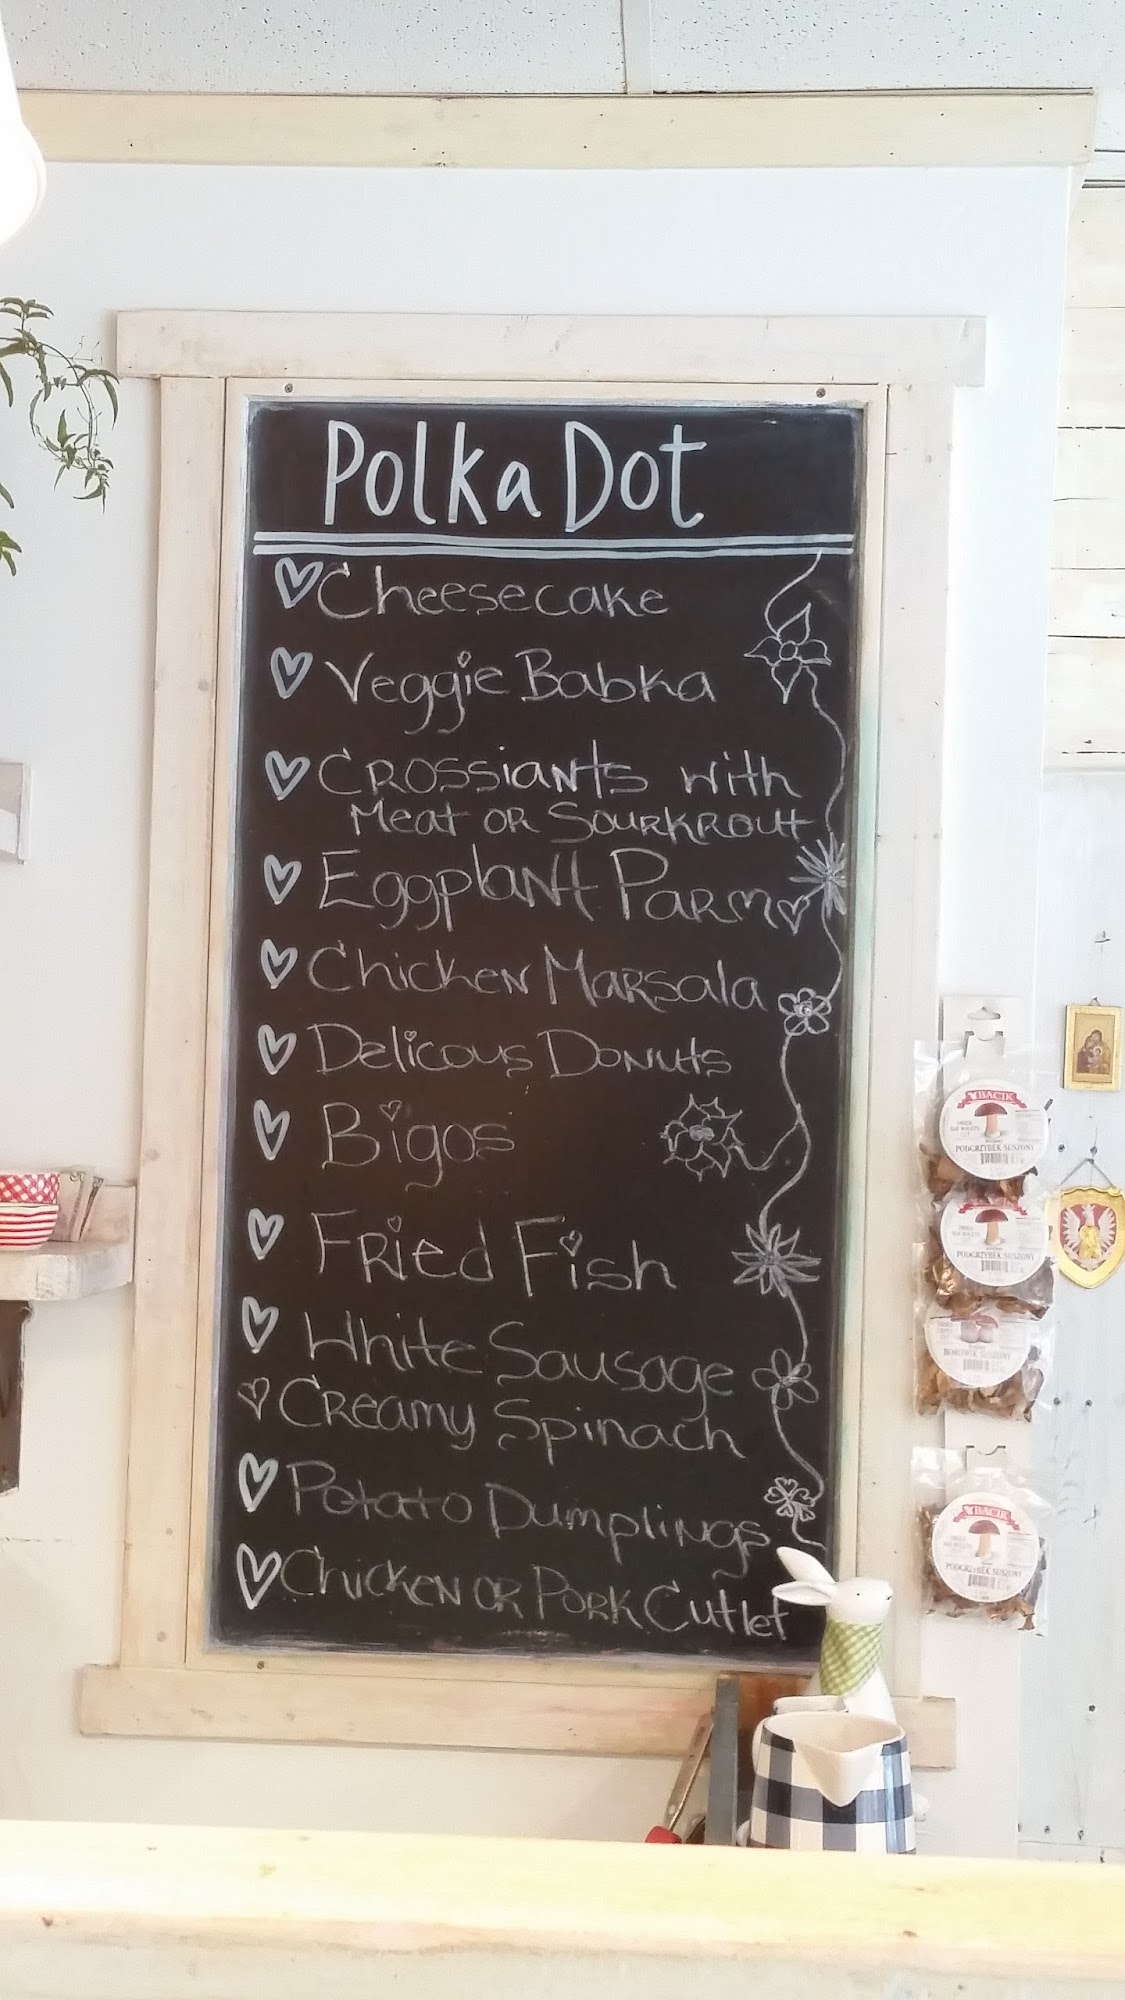 Polka Dot
Cheesecake
Veggie Babka
Crossiants with
Meat or Sourkrout
Eggplant Parm
Chicken Marsala
Delicous Donuts
Bigos
Fried Fish
White Sausage
Creamy Spinach
Potato Dumplings
Chicken or Pork Cutlet
BACIK
PODGRZYBEK SUSZONY
PODGRZYBEK SUSZONY
BOROWIK SUSZONY
BACIK
PODGRZYBEK SUSZONY